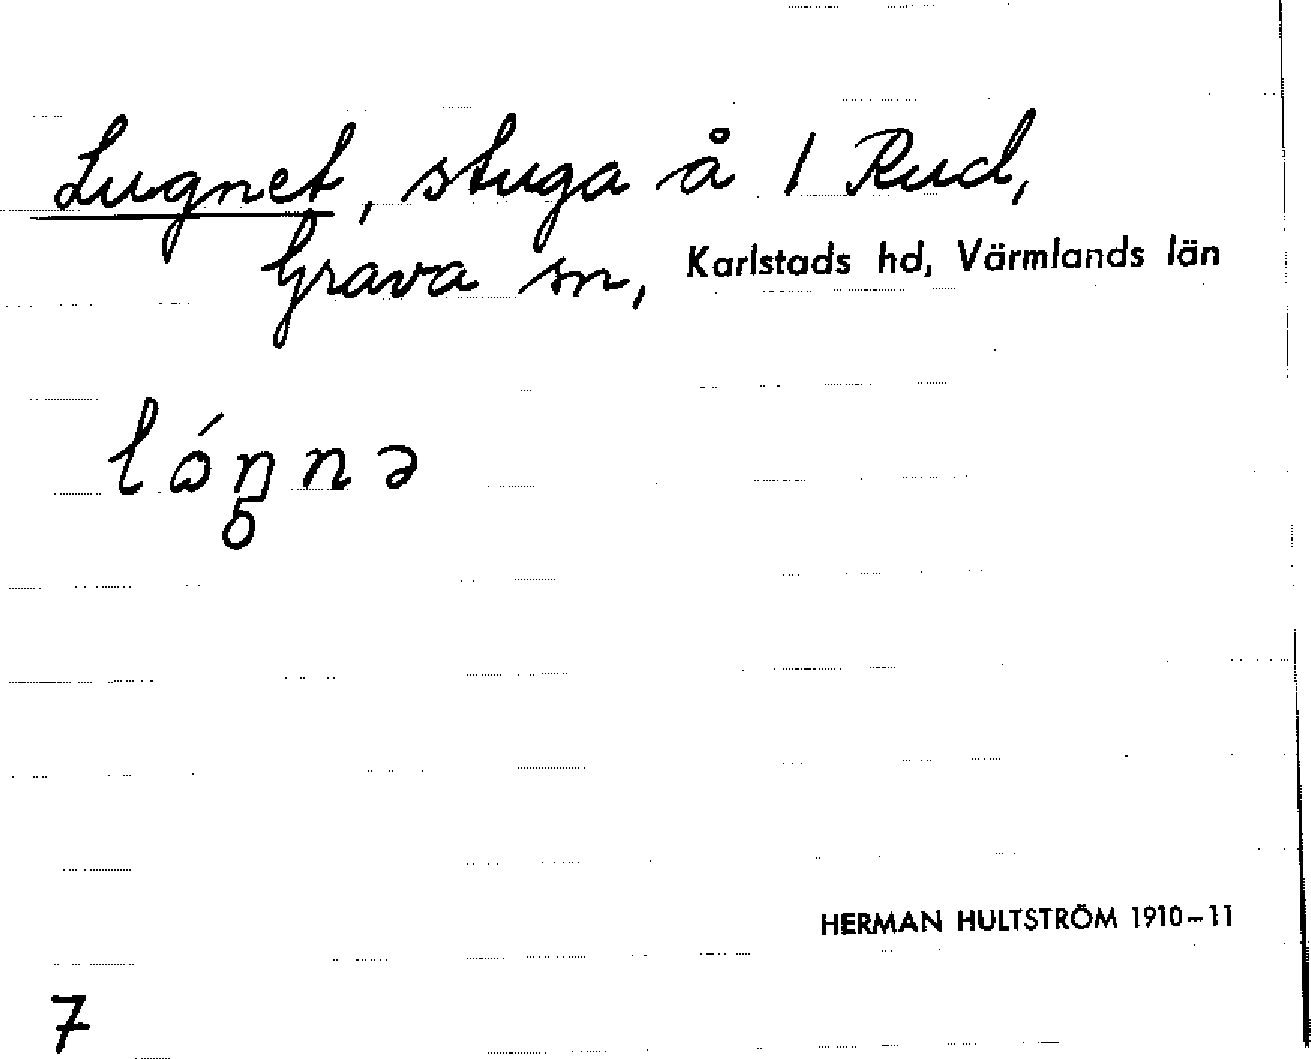 Lugnet, stuga å 1 Rud,
Grava sn, Karlstads hd, Värmlands län
HERMAN HULTSTRÖM 1910-11
7